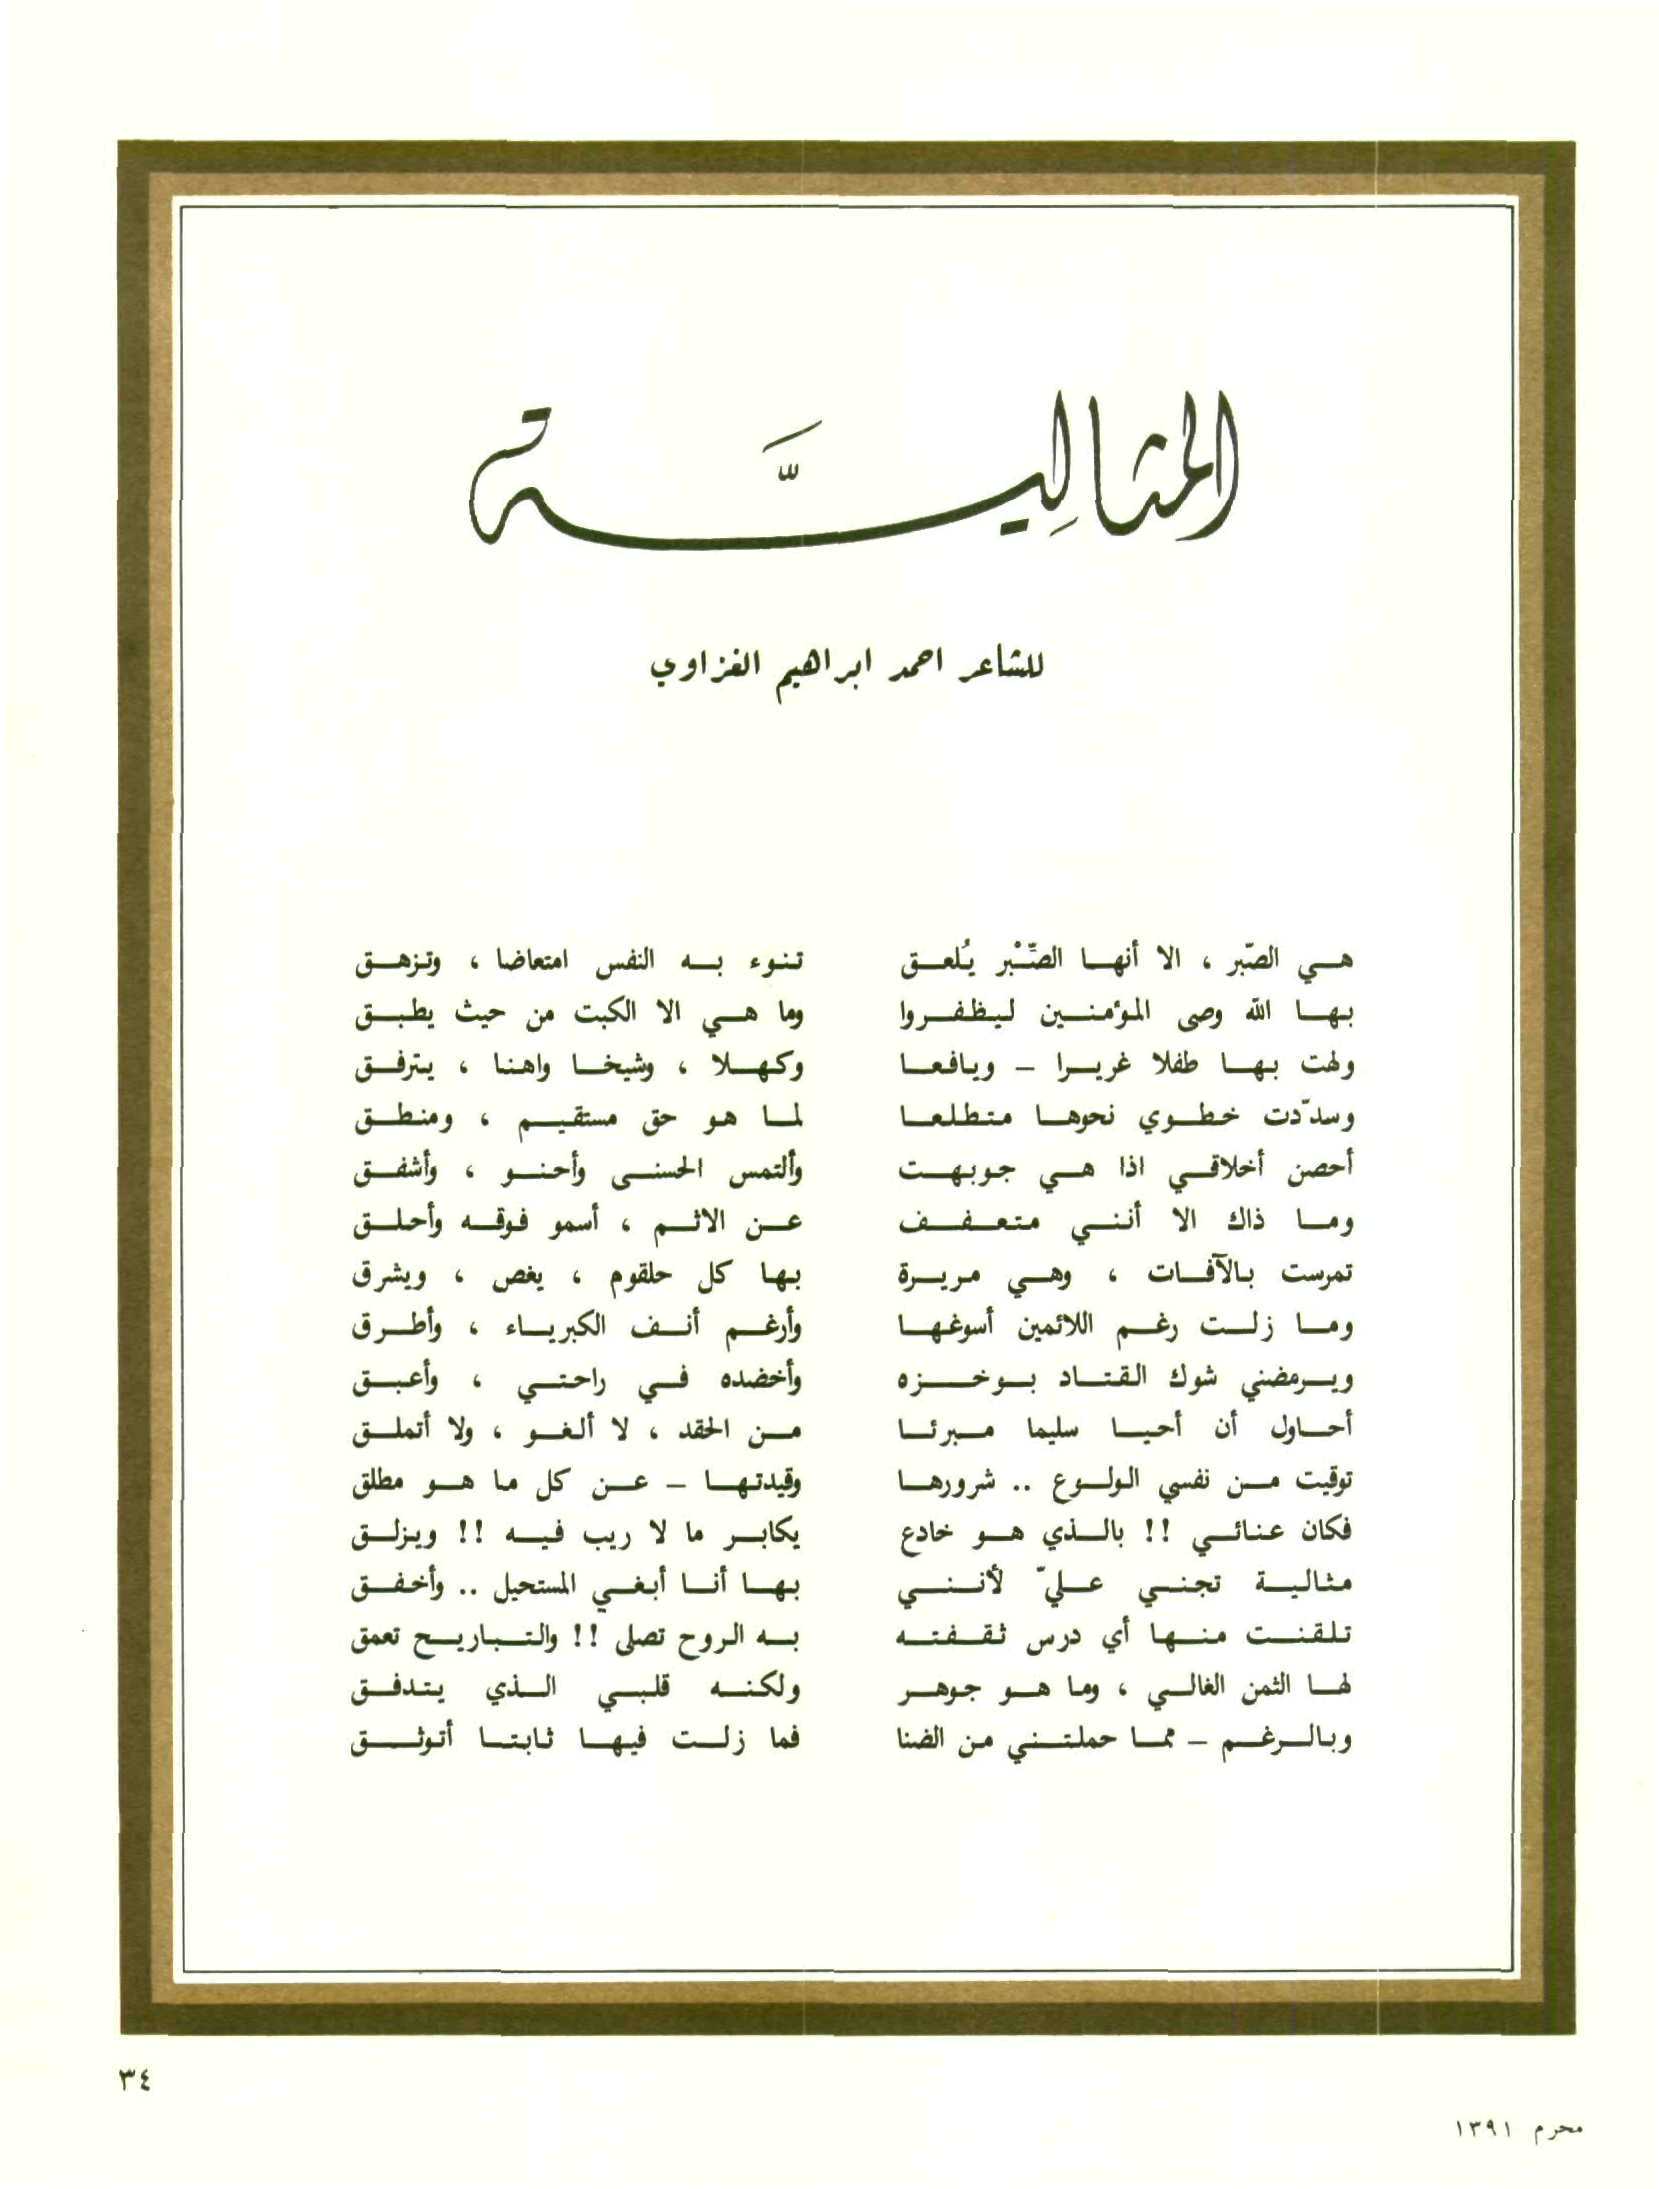 المثاليَّة
للشاعر احمد ابراهيم الغزاوي
هي الصّبر ، الا أنها الصَّبْر يُلعق تنوء به النفس امتعاضا ، وتزهق
بها الله وصى المؤمنين ليظفروا وما هي الا الكبت من حيث يطبق
ولهت بها طفلا غريرا – ويافعا وكهلا ، وشيخا واهنا ، يترفق
وسدّدت خطوي نحوها متطلعا لما هو حق مستقيم ، ومنطق
أحصن أخلاقي اذا هي جوبهت وألتمس الحسنى وأحنو ، وأشفق
وما ذاك الا أنني متعفف عن الاثم ، أسمو فوقه وأحلق
تمرست بالآفات ، وهي مريرة بها كل حلقوم ، يغص ، ويشرق
وما زلت رغم اللائمين أسوغها وأرغم أنف الكبرياء ، وأطرق
ويرمضني شوك القتاد بوخزه وأخضده في راحتي ، وأعبق
أحاول أن أحيا سليما مبرئا من الحقد ، لا ألغو ، ولا أتملق
توقيت من نفسي الولوع .. شرورها وقيدتها – عن كل ما هو مطلق
فكان عنائي !! بالذي هو خادع يكابر ما لا ريب فيه !! ويزلق
مثالية تجني عليّ لأنني بها أنا أبغي المستحيل .. وأخفق
تلقنت منها أي درس ثقفته به الروح تصلى !! والتباريح تعمق
لها الثمن الغالي ، وما هو جوهر ولكنه قلبي الذي يتدفق
وبالرغم – مما حملتني من الضنا فما زلت فيها ثابتا أتوثق
٣٤
محرم ١٣٩١